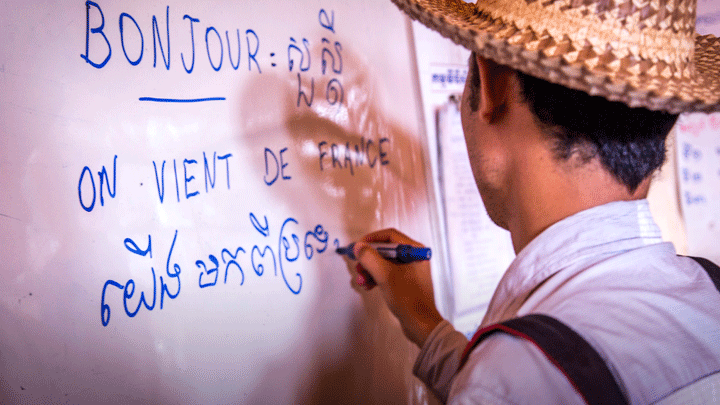 BONJOUR: សួស្ដី
ON VIENT DE FRANCE
យើង មកពីប្រទេ